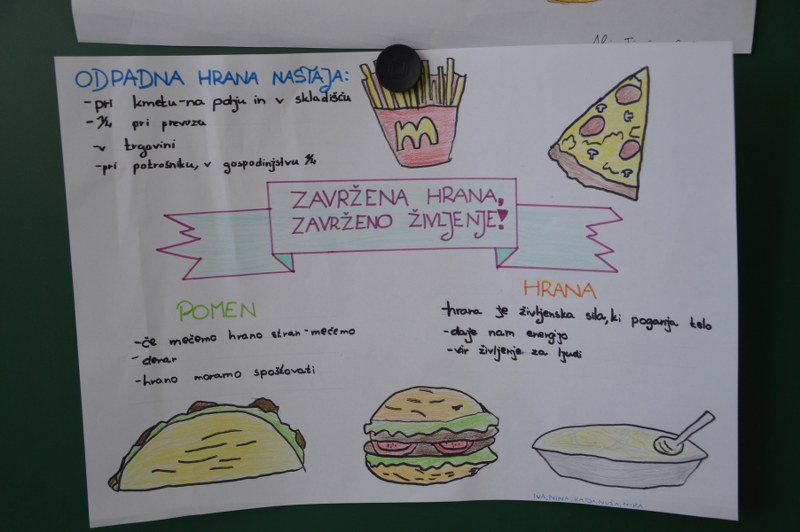 ODPADNA HRANA NASTAJA:
-pri kmetu-na polju in v skladišču
-¼ pri prevozu
-v trgovini
-pri potrošniku, v gospodinjstvu ¼
m
ZAVRŽENA HRANA,
ZAVRŽENO ŽIVLJENJE!
POMEN
-če mečemo hrano stran-mečemo
-denar
-hrano moramo spoštovati
HRANA
-hrana je življenska sila, ki poganja telo
-daje nam energijo
-vir življenje za ljudi